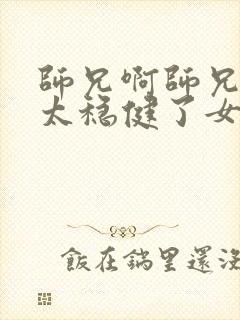 師兄啊師兄
太穩健了女
飯在鍋里還沒